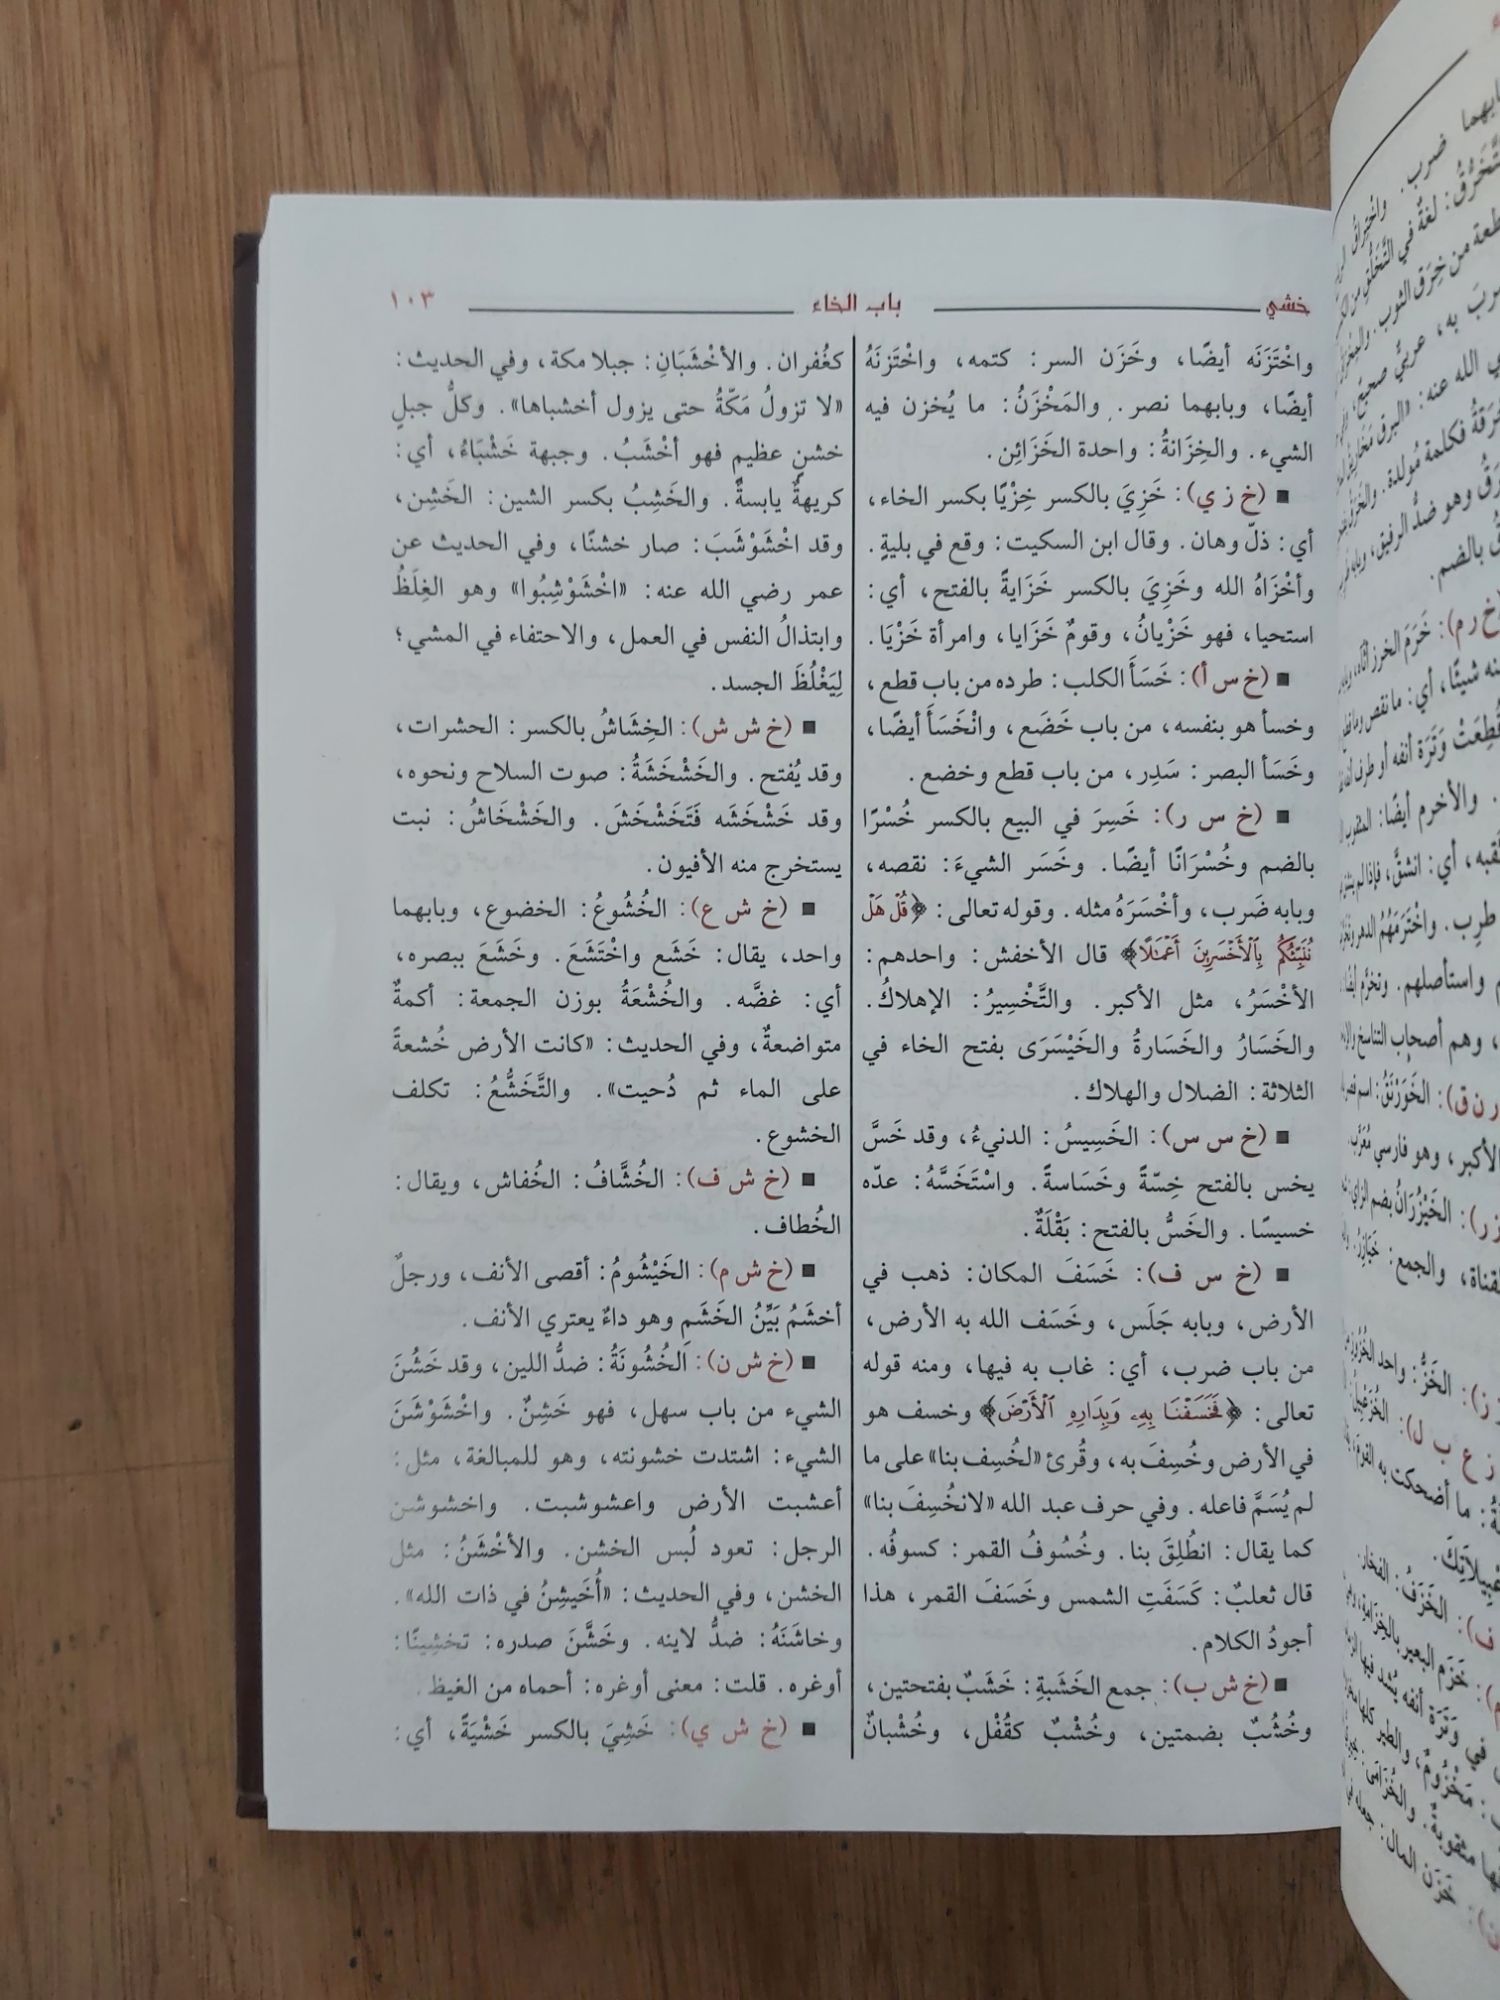 خشي
باب الخاء
١٠٣
واخْتَزَنَه أيضًا، وخَزَن السر: كتمه، واخْتَزنَهُ
أيضًا، وبابهما نصر. والمَخْزَنُ: ما يُخزن فيه
الشيء. والخِزَانةُ: واحدة الخَزَائِن.
■ (خ ز ي): خَزِيَ بالكسر خِزْيًا بكسر الخاء،
أي: ذلّ وهان. وقال ابن السكيت: وقع في بليةٍ.
وأخْزَاهُ الله وخَزِيَ بالكسر خَزَايةً بالفتح، أي:
استحيا، فهو خَزْيانُ، وقومٌ خَزَايا، وامرأة خَزْيَا.
■ (خ س أ): خَسَأَ الكلب: طرده من باب قطع،
وخسأ هو بنفسه، من باب خَضَع، وانْخَسَأَ أيضًا،
وخَسَأ البصر: سَدِر، من باب قطع وخضع.
■ (خ س ر): خَسِرَ في البيع بالكسر خُسْرًا
بالضم وخُسْرَانًا أيضًا. وخَسَر الشيءَ: نقصه،
وبابه ضَرب، وأخْسَرَهُ مثله. وقوله تعالى: ﴿قُلْ هَلْ
نُنَبِّئُكُم بِٱلْأَخْسَرِينَ أَعْمَٰلًا﴾ قال الأخفش: واحدهم:
الأخْسَرُ، مثل الأكبر. والتَّخْسِيرُ: الإهلاكُ.
والخَسَارُ والخَسَارةُ والخَيْسَرَى بفتح الخاء في
الثلاثة: الضلال والهلاك.
■ (خ س س): الخَسِيسُ: الدنيءُ، وقد خَسَّ
يخس بالفتح خِسّةً وخَسَاسةً. واسْتَخَسَّهُ: عدّه
خسيسًا. والخَسُّ بالفتح: بَقْلَةٌ.
■ (خ س ف): خَسَفَ المكان: ذهب في
الأرض، وبابه جَلَس، وخَسَف الله به الأرض،
من باب ضرب، أي: غاب به فيها، ومنه قوله
تعالى: ﴿فَخَسَفْنَا بِهِۦ وَبِدَارِهِ ٱلْأَرْضَ﴾ وخسف هو
في الأرض وخُسِفَ به، وقُرئ «لخُسِف بنا» على ما
لم يُسَمَّ فاعله. وفي حرف عبد الله «لانخُسِفَ بنا»
كما يقال: انطُلِقَ بنا. وخُسُوفُ القمر: كسوفُه.
قال ثعلبٌ: كَسَفَتِ الشمس وخَسَفَ القمر، هذا
أجودُ الكلام.
■ (خ ش ب): جمع الخَشَبةِ: خَشَبٌ بفتحتين،
وخُشُبٌ بضمتين، وخُشْبٌ كقُفْل، وخُشْبانٌ
كغُفران. والأخْشَبَانِ: جبلا مكة، وفي الحديث:
«لا تزولُ مَكّةُ حتى يزول أخشباها». وكلُّ جبلٍ
خشنٍ عظيمٍ فهو أخْشَبُ. وجبهة خَشْبَاءُ، أي:
كريهةٌ يابسةٌ. والخَشِبُ بكسر الشين: الخَشِن،
وقد اخْشَوْشَبَ: صار خشنًا، وفي الحديث عن
عمر رضي الله عنه: «اخْشَوْشِبُوا» وهو الغِلَظُ
وابتذالُ النفس في العمل، والاحتفاء في المشي؛
لِيَغْلُظَ الجسد.
■ (خ ش ش): الخِشَاشُ بالكسر: الحشرات،
وقد يُفتح. والخَشْخَشَةُ: صوت السلاح ونحوه،
وقد خَشْخَشَه فَتَخَشْخَشَ. والخَشْخَاشُ: نبت
يستخرج منه الأفيون.
■ (خ ش ع): الخُشُوعُ: الخضوع، وبابهما
واحد، يقال: خَشَع واخْتَشَعَ. وخَشَعَ ببصره،
أي: غضَّه. والخُشْعَةُ بوزن الجمعة: أكمةٌ
متواضعةٌ، وفي الحديث: «كانت الأرض خُشعةً
على الماء ثم دُحيت». والتَّخَشُّعُ: تكلف
الخشوع.
■ (خ ش ف): الخُشَّافُ: الخُفاش، ويقال:
الخُطاف.
■ (خ ش م): الخَيْشُومُ: أقصى الأنف، ورجلٌ
أخشَمُ بَيِّنُ الخَشَمِ وهو داءٌ يعتري الأنف.
■ (خ ش ن): الخُشُونَةُ: ضدُّ اللين، وقد خَشُنَ
الشيء من باب سهل، فهو خَشِنٌ. واخْشَوْشَنَ
الشيء: اشتدت خشونته، وهو للمبالغة، مثل:
أعشبت الأرض واعشوشبت. واخشوشن
الرجل: تعود لُبس الخشن. والأخْشَنُ: مثل
الخشن، وفي الحديث: «أُخَيشِنُ في ذات الله».
وخاشَنَهُ: ضدُّ لاينه. وخَشَّنَ صدره: تخشِينًا:
أوغره. قلت: معنى أوغره: أحماه من الغيظ.
■ (خ ش ي): خَشِيَ بالكسر خَشْيَةً، أي: